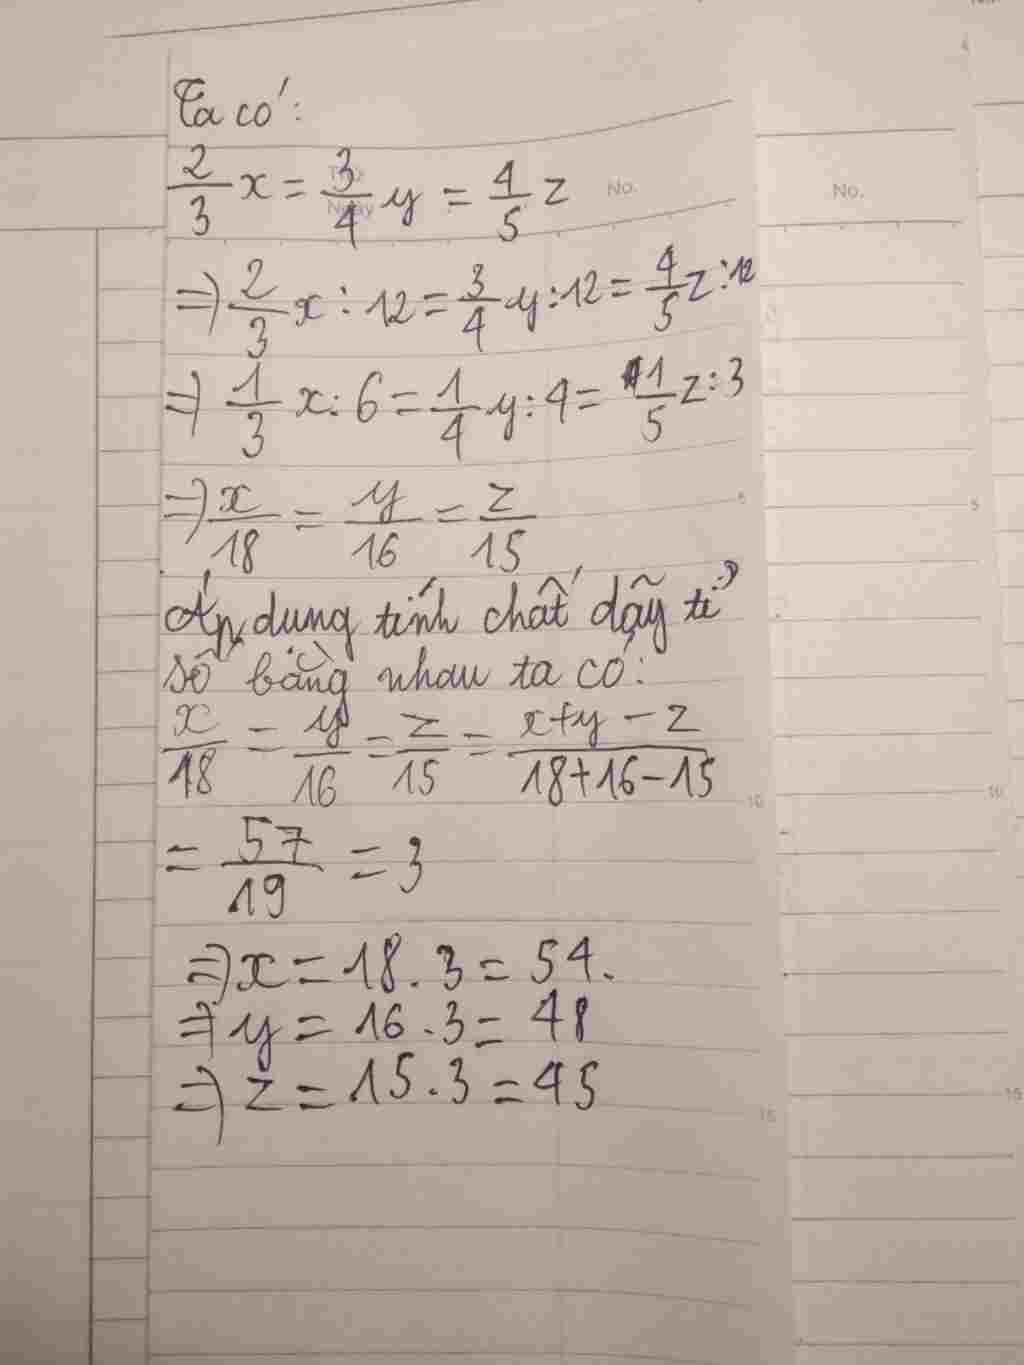 Ta có:
2/3 x = 3/4 y = 4/5 z
No.
No.
Ngày
=> 2/3 x : 12 = 3/4 y : 12 = 4/5 z : 12
=> 1/3 x : 6 = 1/4 y : 4 = 1/5 z : 3
=> x/18 = y/16 = z/15
5
5
Áp dụng tính chất dãy tỉ
số bằng nhau ta có:
x/18 = y/16 = z/15 = x+y-z/18+16-15
10
10
= 57/19 = 3
=> x = 18 . 3 = 54.
=> y = 16 . 3 = 48
=> z = 15 . 3 = 45
15
15